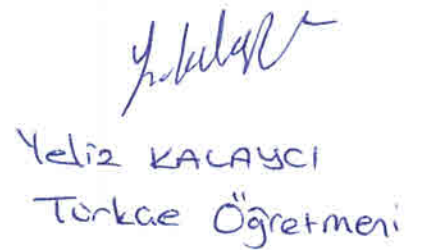 Yeliz KALAYCI
Türkçe Öğretmeni